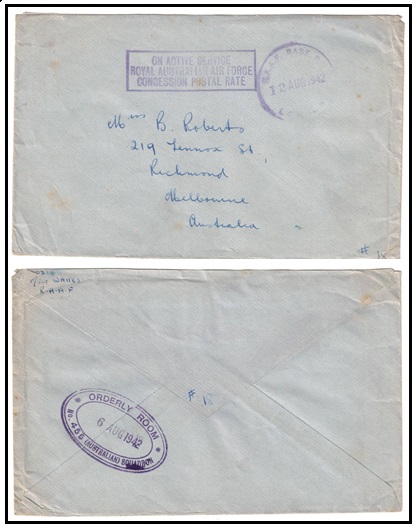 ON ACTIVE SERVICE
ROYAL AUSTRALIAN AIR FORCE
CONCESSION POSTAL RATE
R.A.A.F. BASE
12 AUG 1942
Miss B. Roberts
219 Lennox St,
Richmond
Melbourne
Australia
# 18
R.A.A.F
# 18
ORDERLY ROOM
6 AUG 1942
No. 466 (AUSTRALIAN) SQUADRON